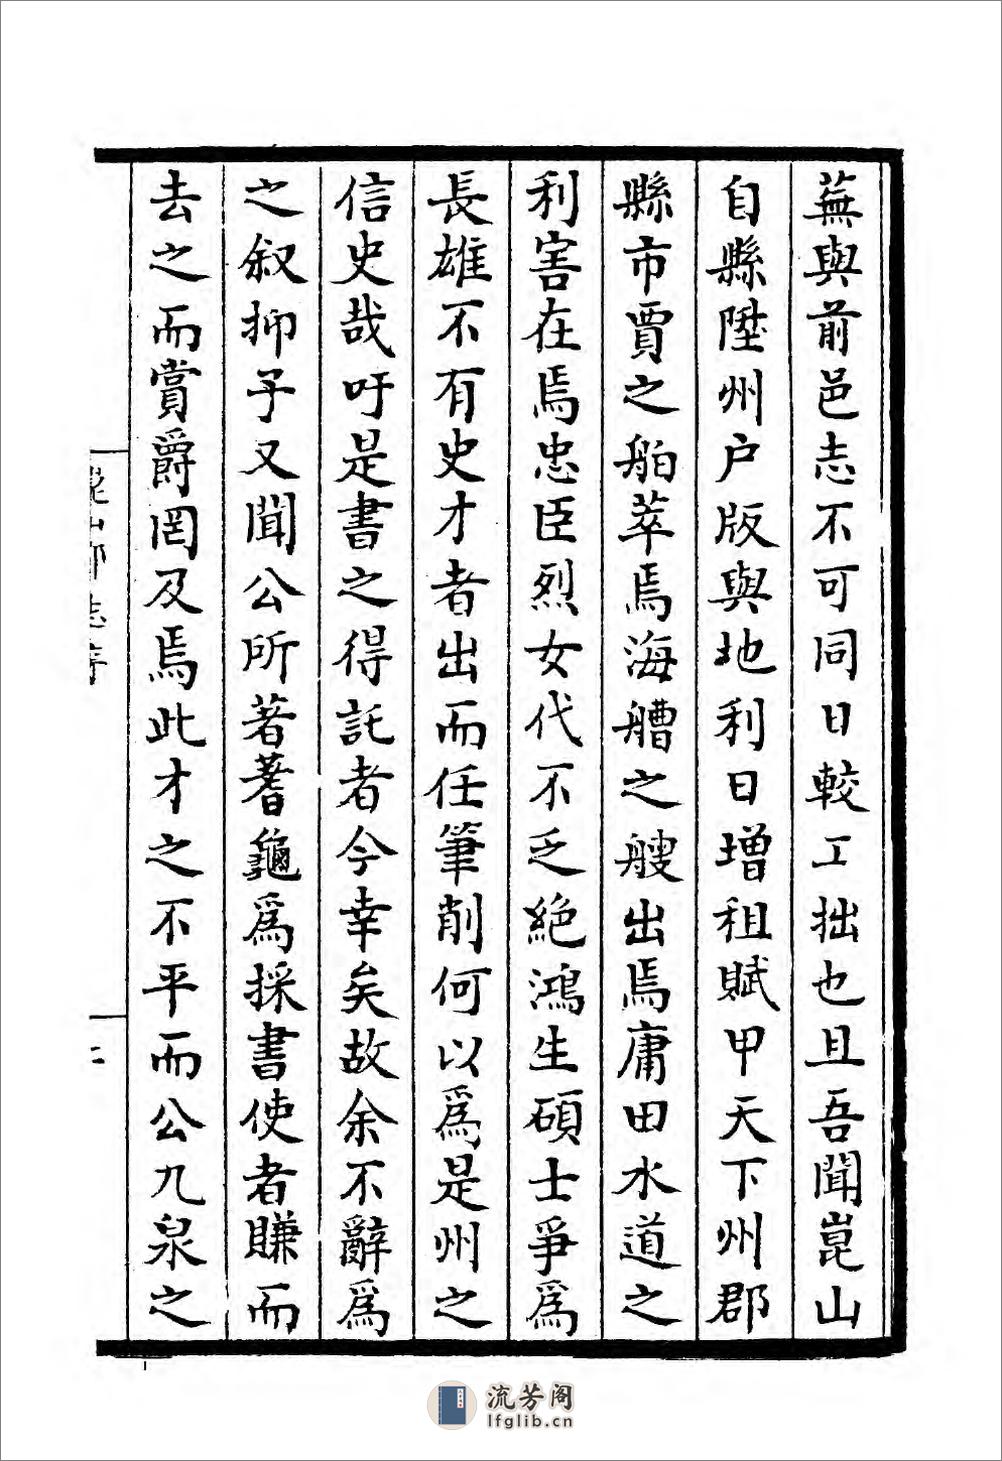 蕪與前邑志不可同日較工拙也且吾聞崑山
自縣陞州户版與地利日增租賦甲天下州郡
縣市賈之舶萃焉海艚之艘出焉庸田水道之
利害在焉忠臣烈女代不乏絶鴻生碩士爭爲
長雄不有史才者出而任筆削何以爲是州之
信史哉吁是書之得託者今幸矣故余不辭爲
之叙抑子又聞公所著蓍龜爲採書使者賺而
去之而賞爵罔及焉此才之不平而公九泉之
流芳阁
lfglib.cn